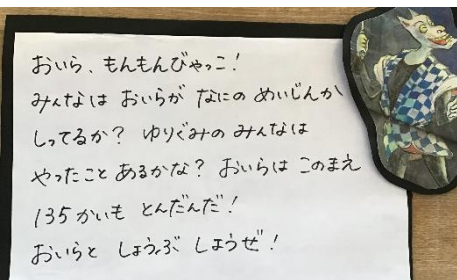 おいら、もんもんびゃっこ！
みんなは おいらが なにの めいじんか
しってるか？ ゆりぐみの みんなは
やったこと あるかな？ おいらは このまえ
135かいも とんだんだ！
おいらと しょうぶ しようぜ！